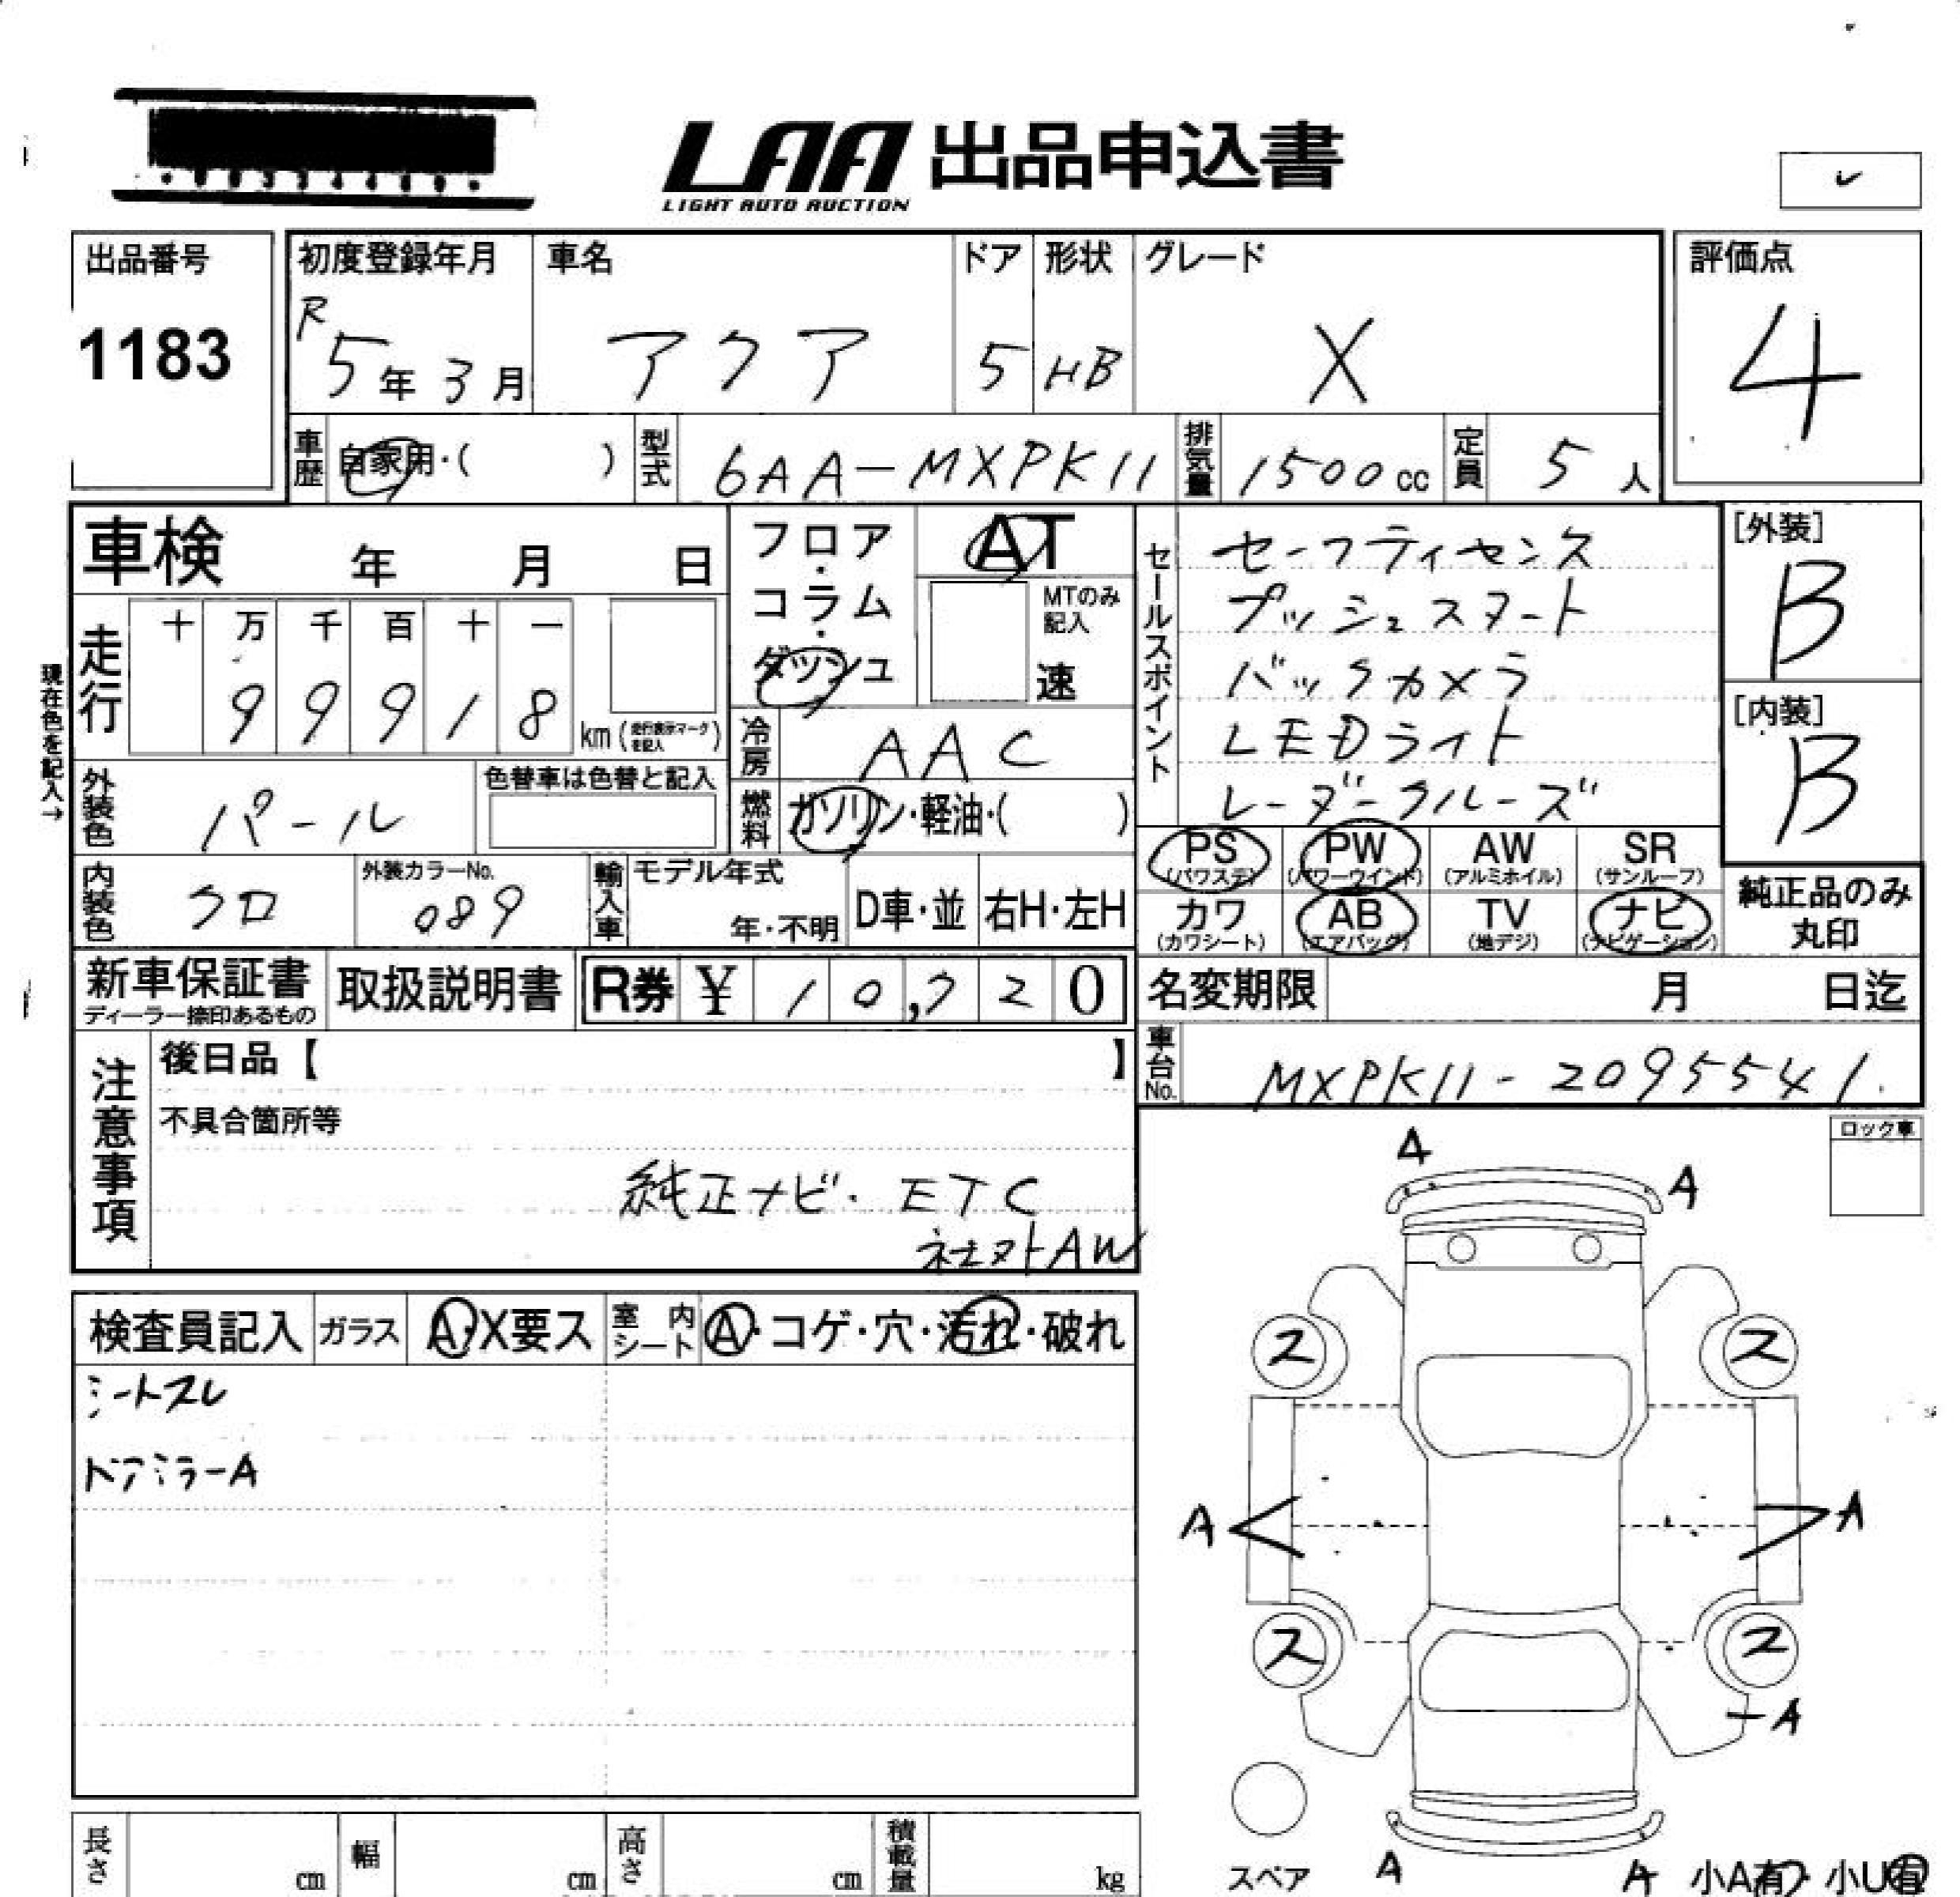 LAA 出品申込書
LIGHT AUTO AUCTION
出品番号
1183
初度登録年月
R5年3月
車名
アクア
ドア
5
形状
HB
グレード
X
評価点
4
車歴
自家用・( )
型式
6AA-MXPK11
排気量
1500cc
定員
5人
車検 年 月 日
フロア・コラム・ダッシュ
AT
MTのみ記入
速
セールスポイント
セーフティセンス
プッシュスタート
バックカメラ
LEDライト
レーダークルーズ
[外装]
B
[内装]
B
現在色を記入→
走行
十 万 千 百 十 一
9 9 9 1 8
km(走行表示マークを記入)
冷房
AAC
外装色
パール
色替車は色替と記入
燃料
ガソリン・軽油・( )
PS AW PW SR
(パワステ) (パワーウインド) (アルミホイル) (サンルーフ)
カワ AB TV ナビ
(カワシート) (エアバッグ) (地デジ) (ナビゲーション)
純正品のみ
丸印
内装色
クロ
外装カラーNo.
089
輸入車
モデル年式
年・不明
D車・並
右H・左H
新車保証書
ディーラー捺印あるもの
取扱説明書
R券 ¥ 10,720
名変期限 月 日迄
車台No.
MXPK11-2095541.
注意事項
後日品【 】
不具合箇所等
純正ナビ・ETC
社外AW
ロック車
A
A
検査員記入
ガラス
A・X要ス
室内シート
A・コゲ・穴・汚れ・破れ
シートスレ
ドアミラーA
ス
ス
A
A
ス
ス
A
スペア
A
A
小A有・小U有
長さ cm
幅 cm
高さ cm
積載量 kg